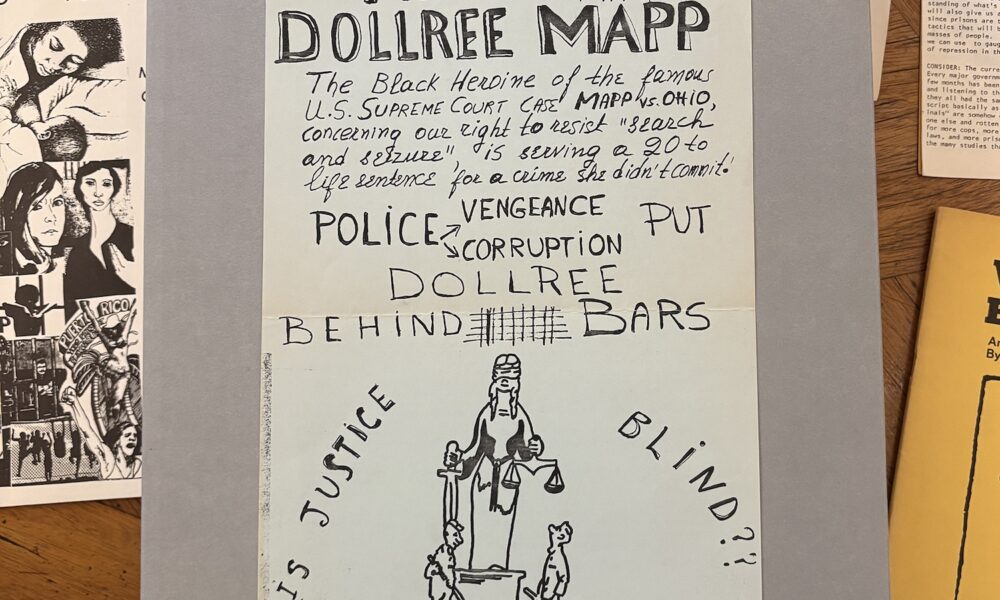 DOLLREE MAPP
The Black Heroine of the famous
U.S. SUPREME COURT CASE MAPP vs. OHIO,
concerning our right to resist "search
and seizure", is serving a 20 to
life sentence for a crime she didn't commit!
POLICE VENGEANCE CORRUPTION PUT
DOLLREE
BEHIND BARS
IS JUSTICE BLIND??
PUERTO RICO
standing of what's
will also give us a
since prisons are t
tactics that will b
masses of people.
we can use to gaug
of repression in th
CONSIDER: The curre
Every major governm
few months has been
and listening to th
they all had the sa
script basically as
inals" are somehow
one else and rotten
for more cops, more
laws, and more priso
the many studies th
By